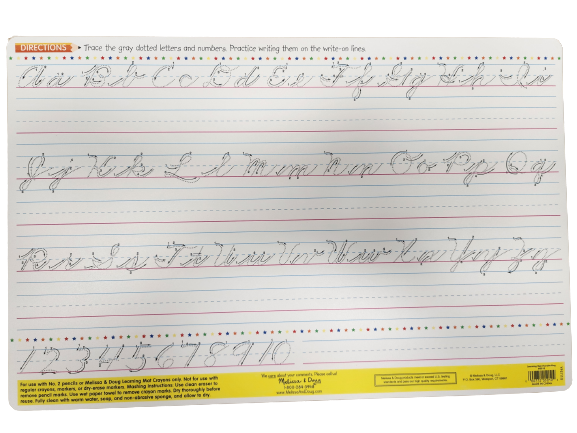 DIRECTIONS • Trace the gray dotted letters and numbers. Practice writing them on the write-on lines.
Aa Bb Cc Dd Ee Ff Gg Hh Ii
Jj Kk Ll Mm Nn Oo Pp Qq
Rr Ss Tt Uu Vv Ww Xx Yy Zz
1 2 3 4 5 6 7 8 9 10
For use with No. 2 pencils or Melissa & Doug Learning Mat Crayons only. Not for use with
regular crayons, markers, or dry-erase markers. Washing Instructions: Use clean eraser to
remove pencil marks. Use wet paper towel to remove crayon marks. Dry thoroughly before
reuse. Fully clean with warm water, soap, and non-abrasive sponge, and allow to dry.
We care about your comments. Please call us!
Melissa & Doug
www.MelissaAndDoug.com